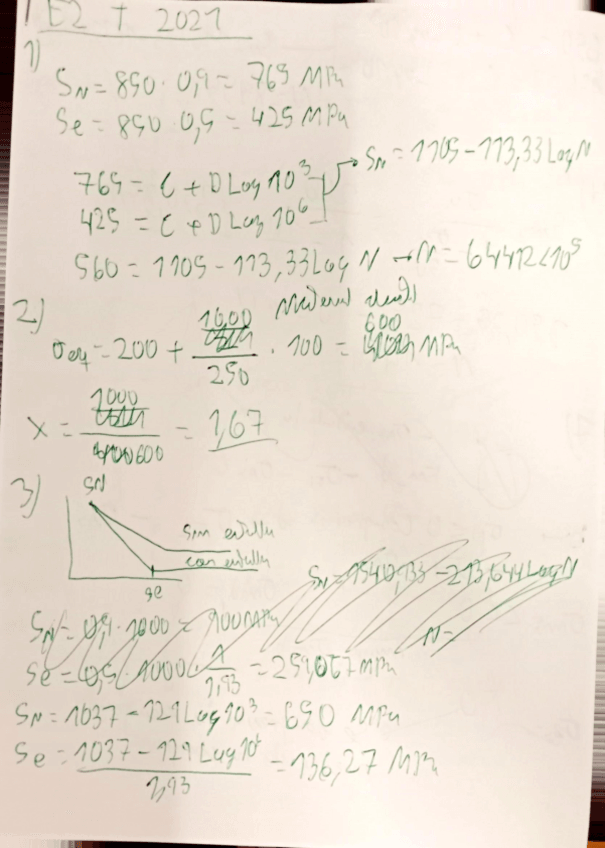 E2 T 2021
1)
SN = 850 · 0,9 = 765 MPa
Se = 850 · 0,5 = 425 MPa
765 = C + D Log 10³
425 = C + D Log 10⁶
SN = 1105 - 113,33 Log N
560 = 1105 - 113,33 Log N → N = 64412 < 10⁵
2)
σeq = 200 + 1000 / 250 · 100 = 600 MPa
X = 1000 / 600 = 1,67
3)
SN
Sin entalla
con entalla
Se
SN = 0,9 · 1000 = 900 MPa
Se = 0,5 · 1000 · 1 / 1,93 = 259,067 MPa
N =
SN = 1037 - 129 Log 10³ = 650 MPa
Se = 1037 - 129 Log 10⁶ / 1,93 = 136,27 MPa